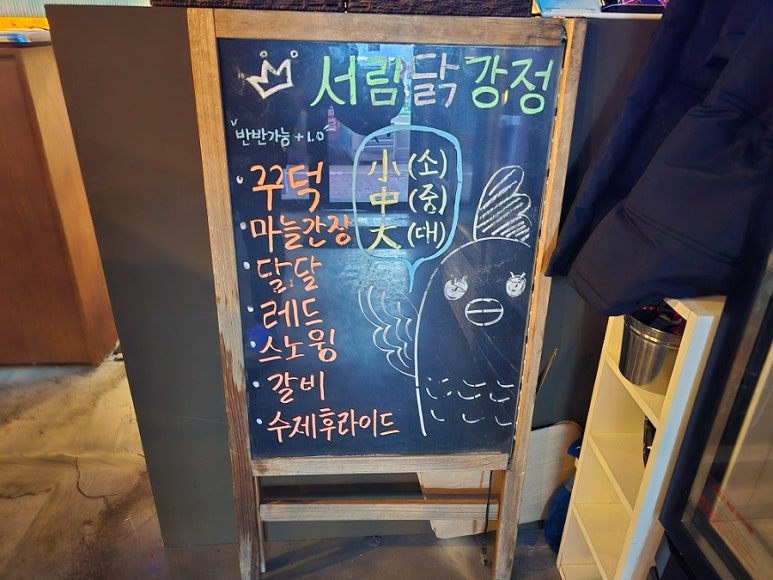 서림닭강정
반반가능 + 1.0
小 (소)
中 (중)
大 (대)
꾸덕
마늘간장
달달
레드
스노윙
갈비
수제후라이드